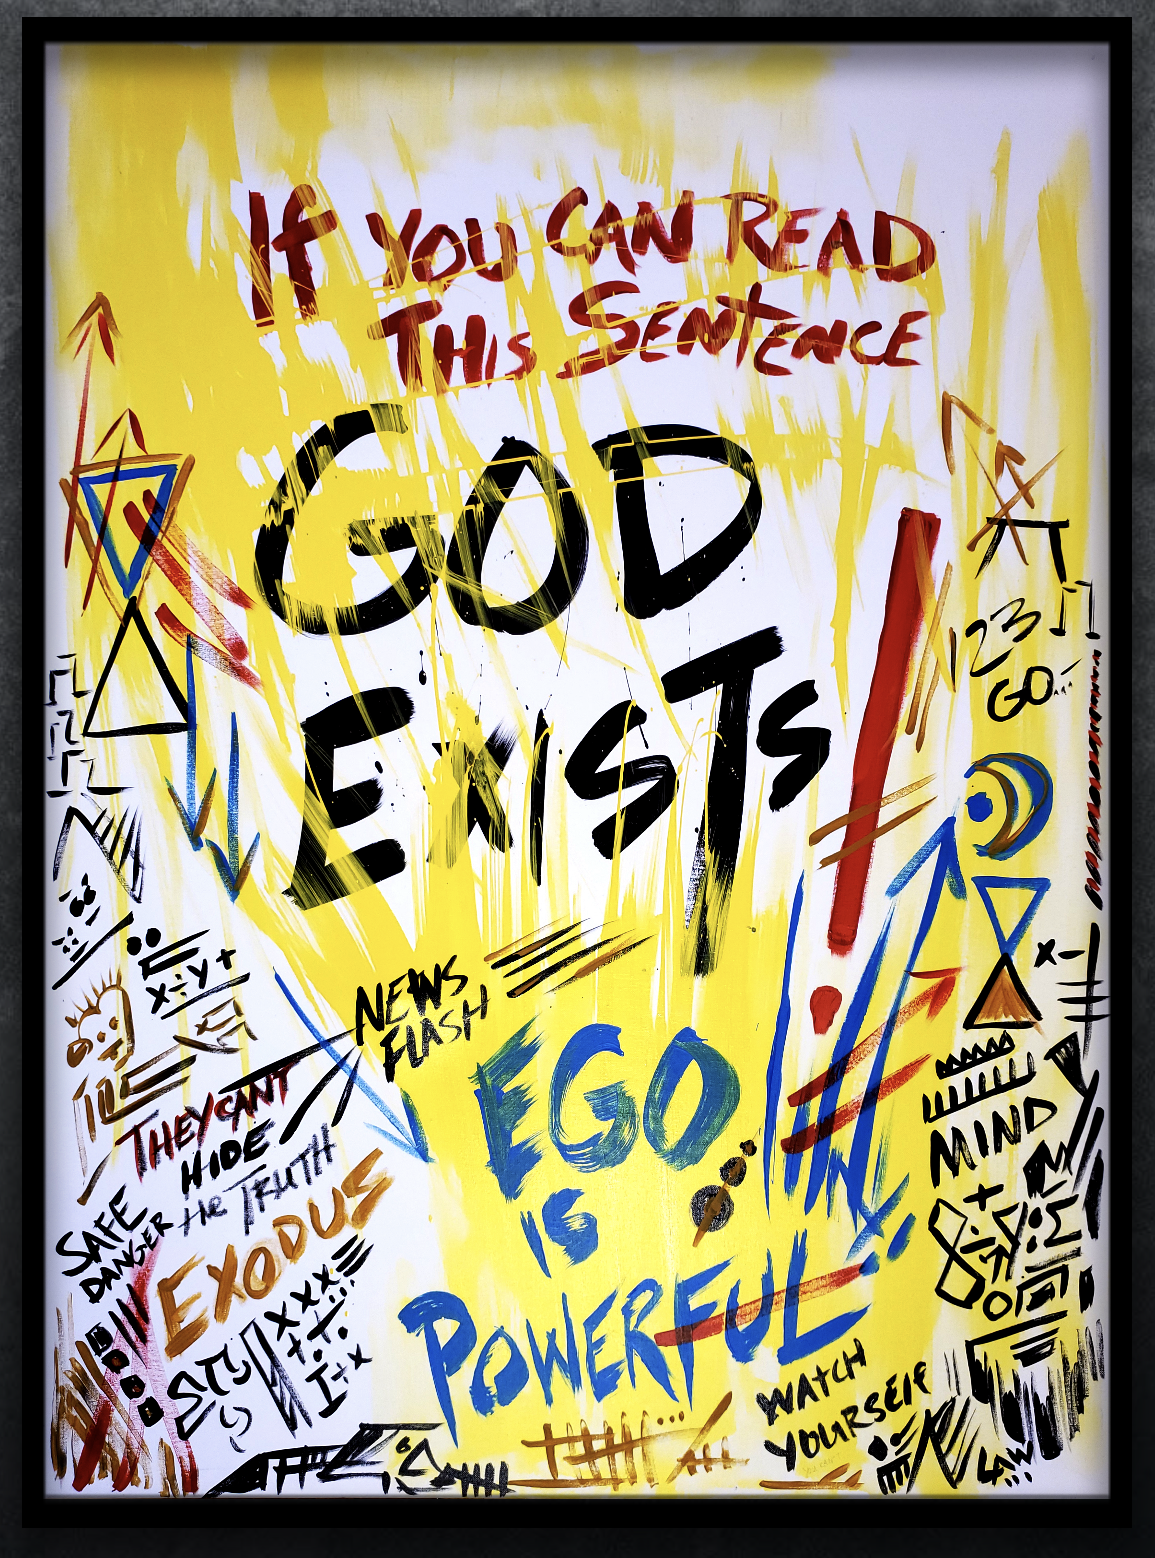 If YOU CAN READ
THIS SENTENCE
GOD
EXISTS!
123
GO
NEWS
FLASH
EGO
IS
POWERFUL
X÷Y+
THEY CANT
HIDE
tHe TRUTH
SAFE
DANGER
EXODUS
X-
MIND
XXX
I+X
WATCH
YOURSELF
LAW